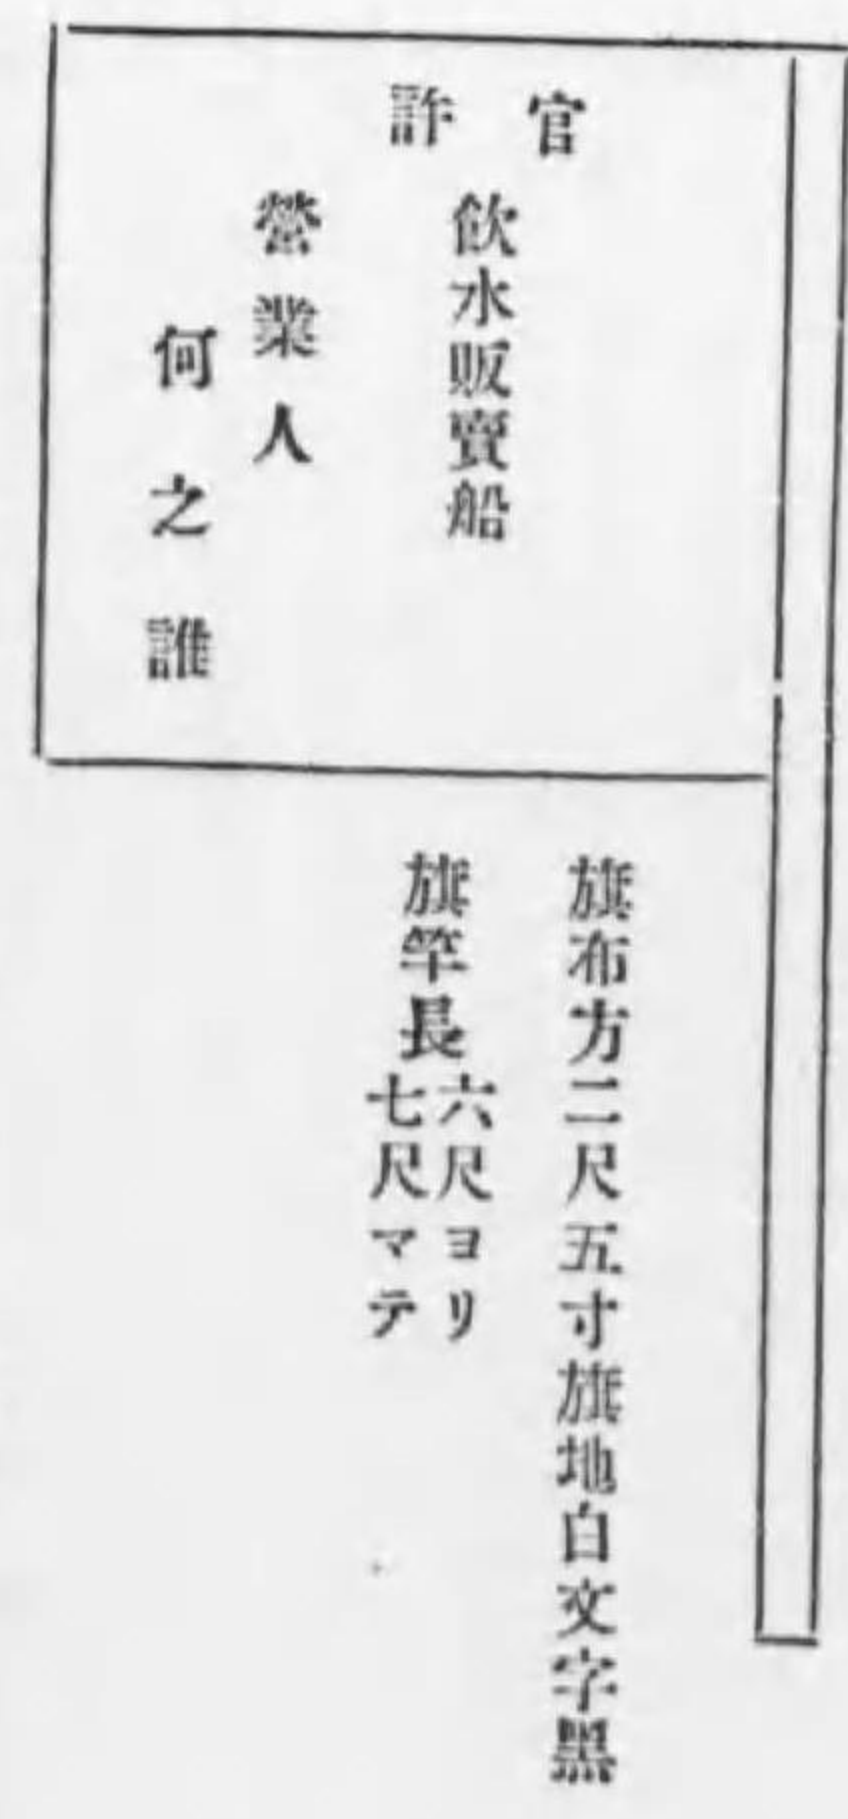 官許
飲水販賣船
營業人
何之誰
旗布方二尺五寸旗地白文字黑
旗竿長六尺ヨリ
七尺マテ